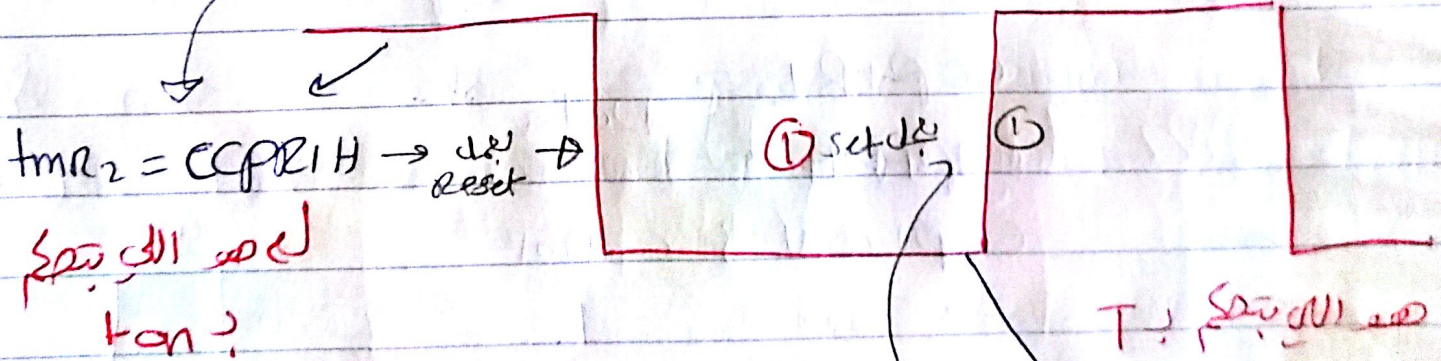 tmR2 = CCPR1H → بعمل Reset →
① بعمل set
①
هو اللي بتحكم
بـ ton
هو اللي بتحكم بـ T